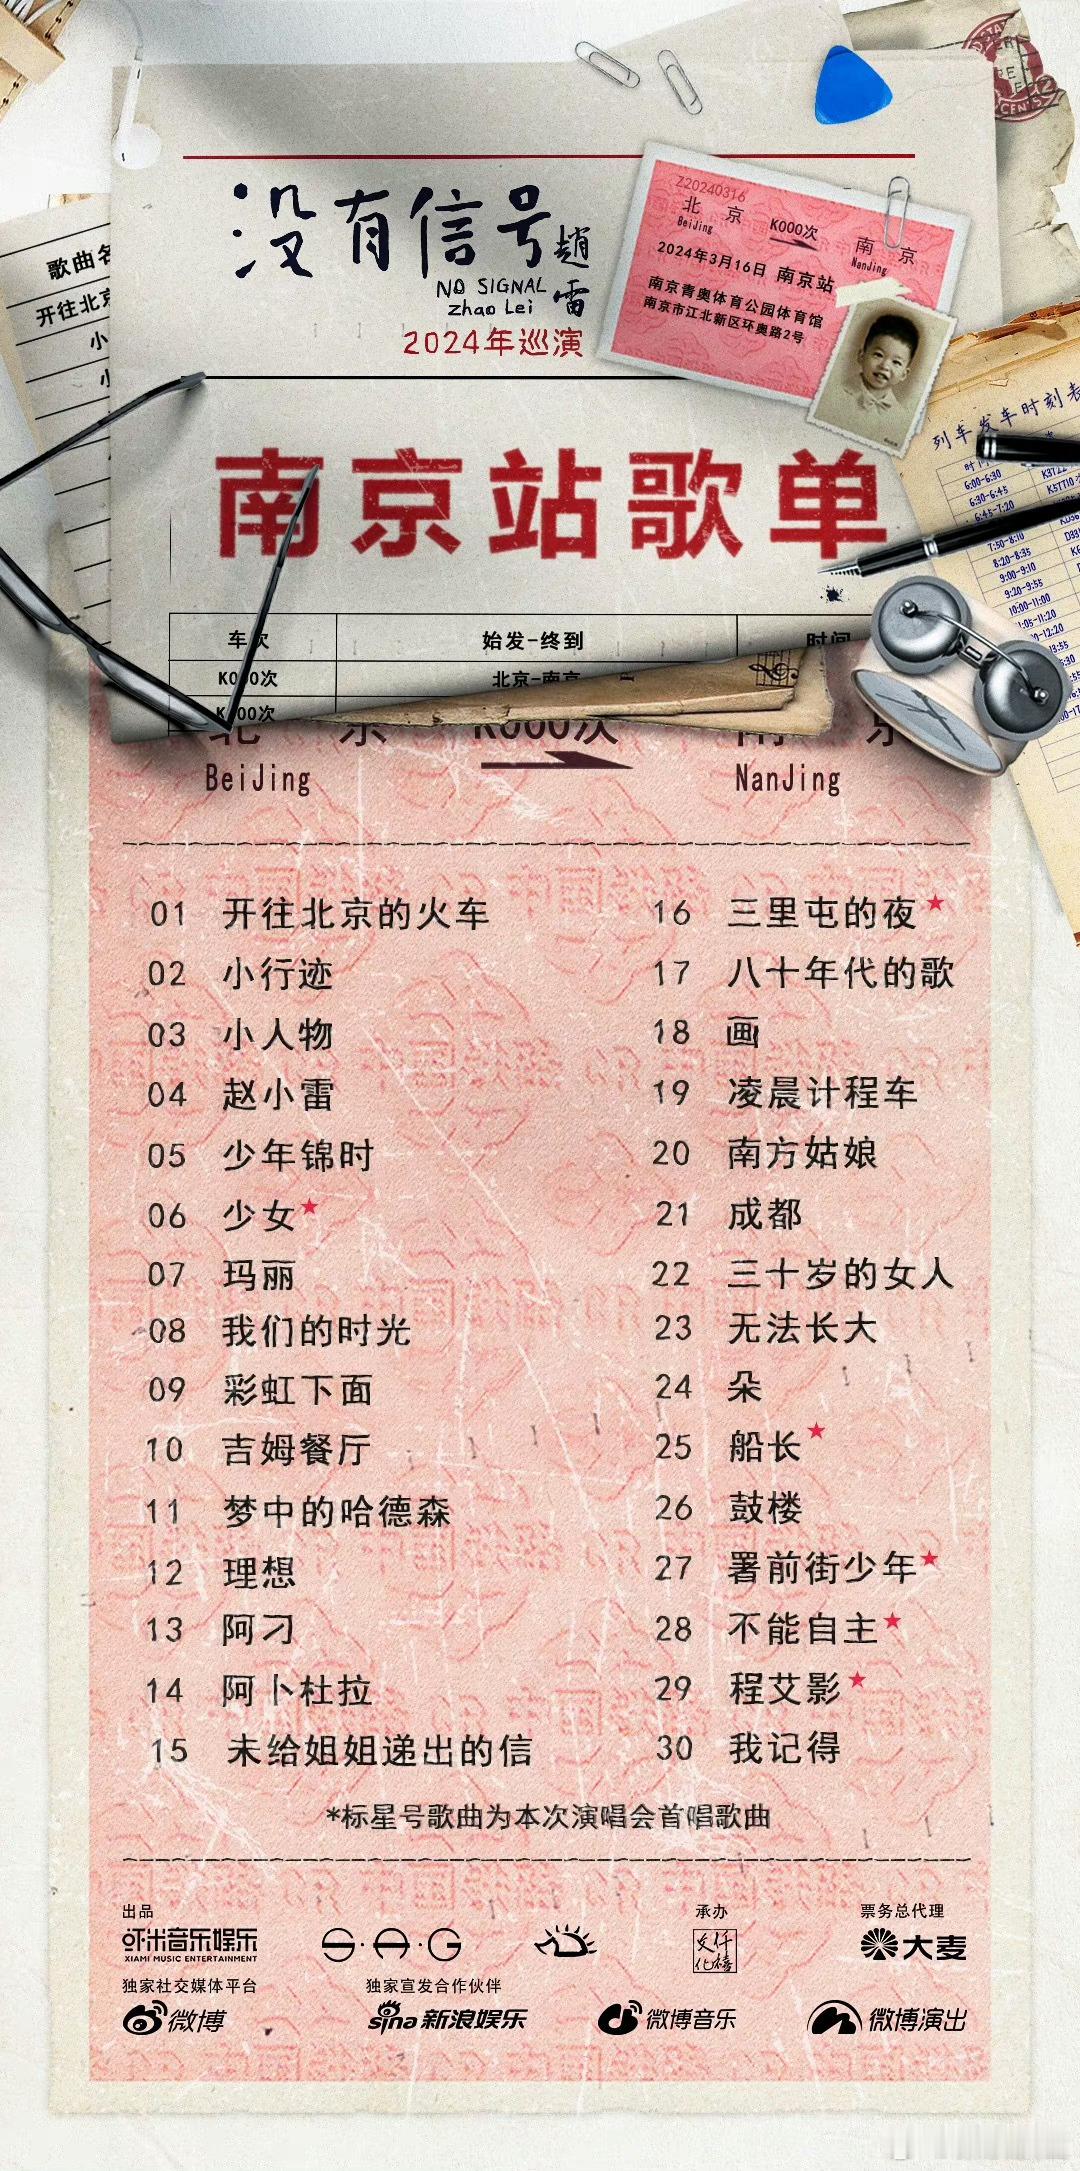 没有信号
趙雷
NO SIGNAL
Zhao Lei
2024年巡演
Z20240316
北京 K000次 南京
BeiJing NanJing
2024年3月16日 南京站
南京青奥体育公园体育馆
南京市江北新区环奥路2号
歌曲名
开往北京
小
小
列车发车时刻表
6:00-6:30
6:30-6:45
6:45-7:20
7:50-8:10
8:20-8:35
9:00-9:10
9:20-9:55
10:00-11:00
南京站歌单
车次 始发-终到 时间
K000次 北京-南京
K000次
北京 K000次 南京
BeiJing NanJing
01 开往北京的火车
02 小行迹
03 小人物
04 赵小雷
05 少年锦时
06 少女★
07 玛丽
08 我们的时光
09 彩虹下面
10 吉姆餐厅
11 梦中的哈德森
12 理想
13 阿刁
14 阿卜杜拉
15 未给姐姐递出的信
16 三里屯的夜★
17 八十年代的歌
18 画
19 凌晨计程车
20 南方姑娘
21 成都
22 三十岁的女人
23 无法长大
24 朵
25 船长★
26 鼓楼
27 署前街少年★
28 不能自主★
29 程艾影★
30 我记得
*标星号歌曲为本次演唱会首唱歌曲
出品 承办 票务总代理
虾米音乐娱乐
XIAMI MUSIC ENTERTAINMENT
S·A·G
大麦
独家社交媒体平台 独家宣发合作伙伴
微博 sina新浪娱乐 微博音乐 微博演出